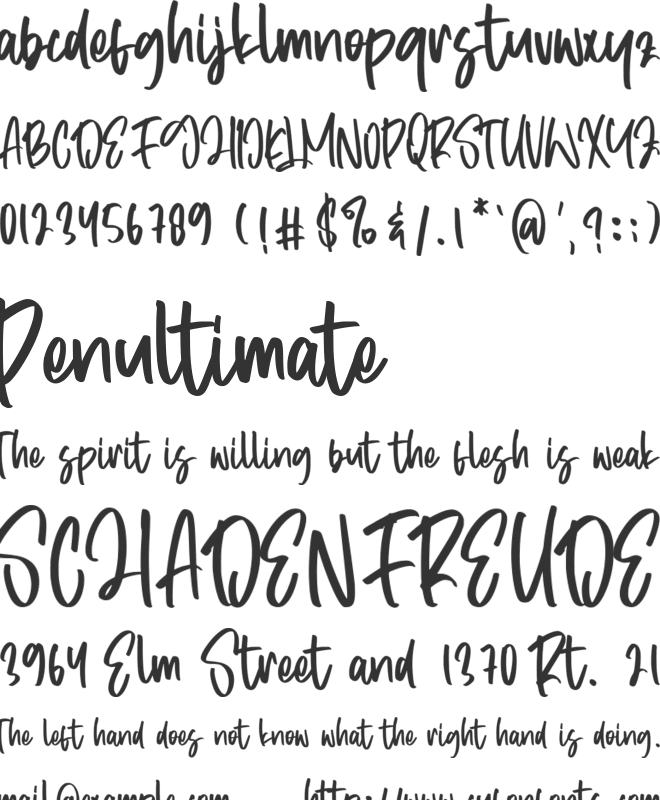 abcdefghijklmnopqrstuvwxyz
ABCDEFGHIJKLMNOPQRSTUVWXYZ
0123456789 (!#$%&/.|*`@',?:;)
Penultimate
The spirit is willing but the flesh is weak
SCHADENFREUDE
3964 Elm Street and 1370 Rt. 21
The left hand does not know what the right hand is doing.
mail@example.com http://www.